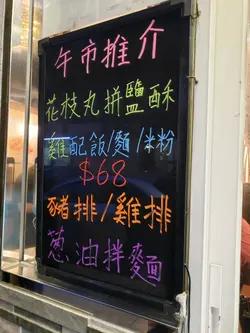 午市推介
花枝丸拼鹽酥
雞配飯/麵/米粉
$68
豬排/雞排
蔥油拌麵